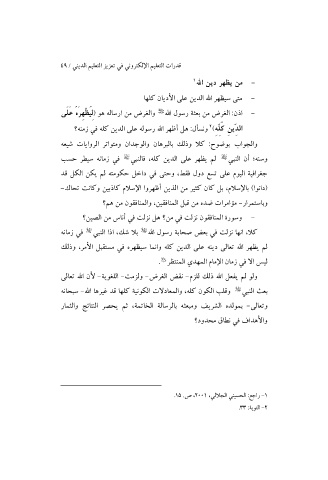 قدرات التعليم الإلكتروني في تعزيز التعليم الديني / ٤٩
- من يظهر دين الله؟
- متى سيظهر الله الدين على الأديان كلها
- اذن: الغرض من بعثة رسول الله ﷺ والغرض من ارساله هو (لِيُظْهِرَهُ عَلَى
الدِّينِ كُلِّهِ)² ونسأل: هل أظهر الله رسوله على الدين كله في زمنه؟
والجواب بوضوح: كلا وذلك بالبرهان والوجدان ومتواتر الروايات شيعه
وسنه؛ أن النبي ﷺ لم يظهر على الدين كله، فالنبي ﷺ في زمانه سيطر حسب
جغرافية اليوم على تسع دول فقط، وحتى في داخل حكومته لم يكن الكل قد
(دانوا) بالإسلام، بل كان كثير من الذين أظهروا الإسلام كاذبين وكانت تحاك-
وباستمرار- مؤامرات ضده من قبل المنافقين، والمنافقون من هم؟
- وسورة المنافقون نزلت في من؟ هل نزلت في أناس من الصين؟
كلا، انها نزلت في بعض صحابة رسول الله ﷺ بلا شك، اذا النبي ﷺ في زمانه
لم يظهر الله تعالى دينه على الدين كله وانما سيظهره في مستقبل الأمر، وذلك
ليس الا في زمان الإمام المهدي المنتظر
ولو لم يفعل الله ذلك للزم- نقض الغرض- ولزمت- اللغوية- لأن الله تعالى
بعث النبي ﷺ وقلب الكون كله، والمعادلات الكونية كلها قد غيرها الله- سبحانه
وتعالى- بمولده الشريف ومبعثه بالرسالة الخاتمة، ثم يحصر النتائج والثمار
والأهداف في نطاق محدود؟
١- راجع: الحسيني الجلالي، ٢٠٠١، ص. ١٥.
٢- التوبة: ٣٣.